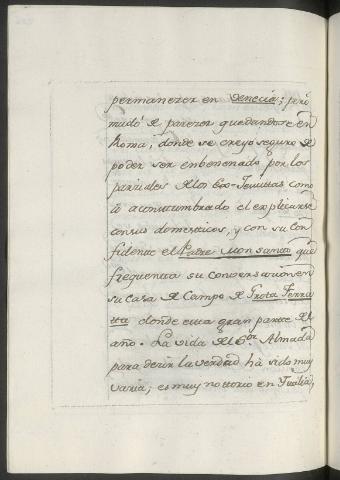 permanezer en Venecia; pero
mudó de parezer quedandose en
Roma, donde se creyó seguro de
poder ser enbenenado por los
parziales de los Ex-Jesuitas como
lo acustumbrado el explicarse
con sus domesticos, y con su Con
fidente el Padre Monsanto que
frequenta su Conversazion en
su Casa de Campo de Grota Ferra
ta donde esta gran parte del
año. La vida del S.or Almada
para dezir la verdad hà sido muy
varia; es muy nottorio en Italia,